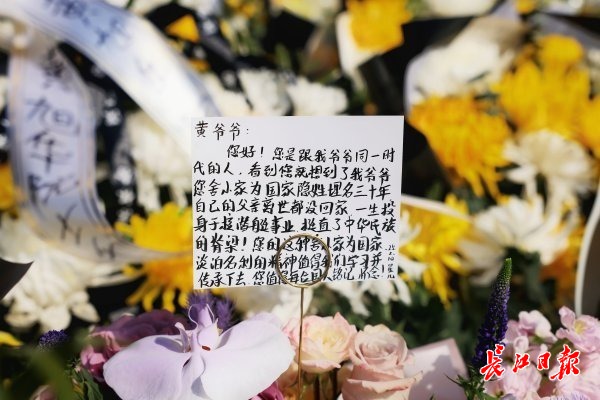 旭华院
黄爷爷：
您好！您是跟我爷爷同一时
代的人，看到您就想到了我爷爷
您舍小家为国家隐姓埋名三十年
自己的父亲离世都没回家，一生投
身于核潜艇事业，挺直了中华民族
的脊梁！您的这种舍小家为国家
淡泊名利的精神值得我们学习并
传承下去，您值得每个国人铭记
长江日报